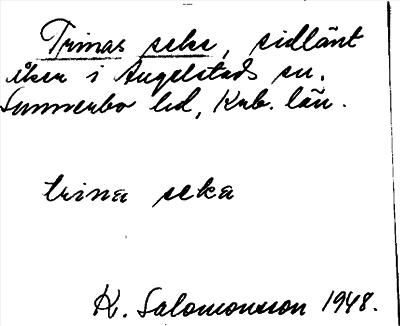 Trinas seke, sidlänt
åker i Angelstads sn.
Sunnerbo hd, Krb. län.
trina seka
K. Salomonsson 1948.